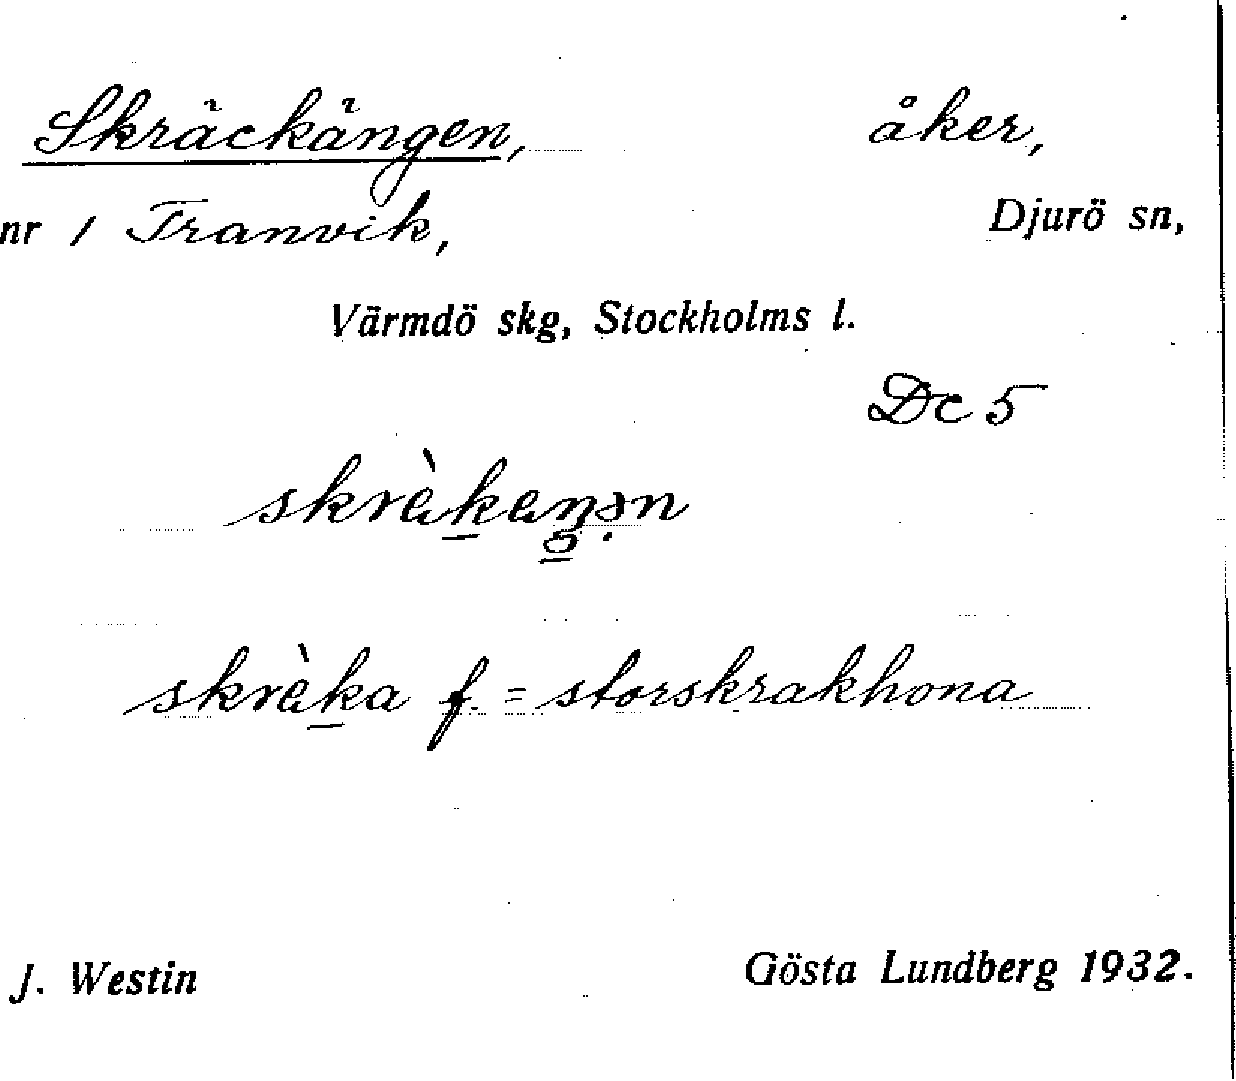 Skräckängen, åker,
nr 1 Tranvik, Djurö sn,
Värmdö skg, Stockholms l.
Dc 5
skräka f. = storskrakhona
J. Westin Gösta Lundberg 1932.